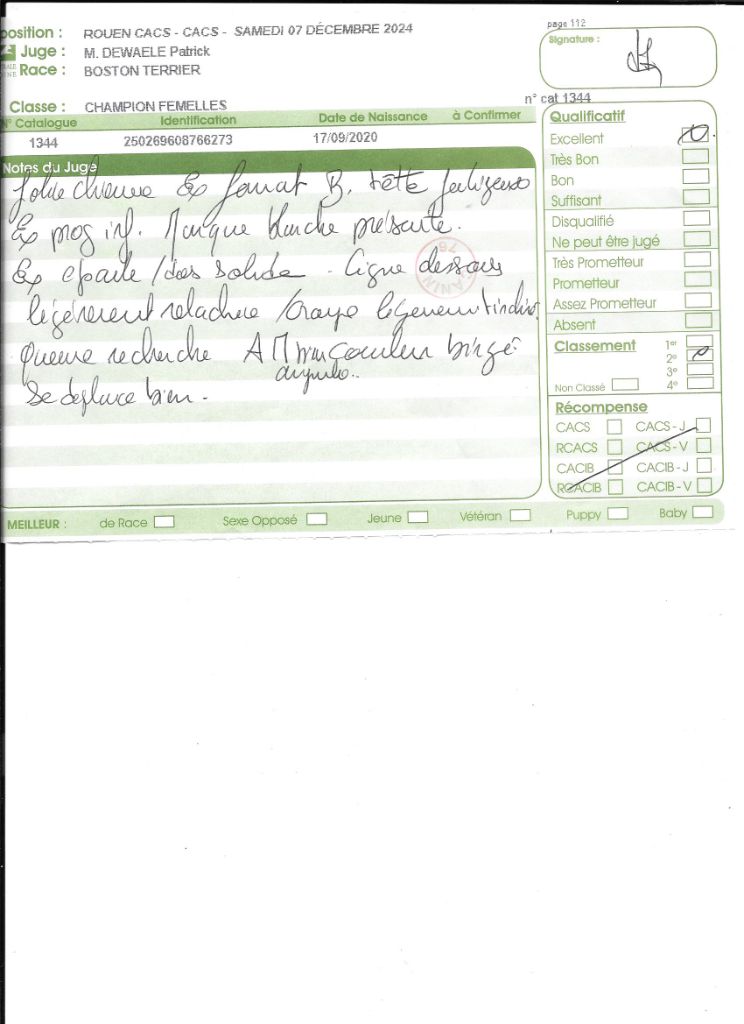 position : ROUEN CACS - CACS - SAMEDI 07 DÉCEMBRE 2024
page 112
Juge : M. DEWAELE Patrick
Signature :
Race : BOSTON TERRIER
Classe : CHAMPION FEMELLES
n° cat 1344
N° Catalogue Identification Date de Naissance à Confirmer
1344 250269608766273 17/09/2020
Notes du Juge
Jolie chienne Ex format B. tête
Ex prog inf. Marque blanche présente.
Ex épaule / dos solide - ligne dessous
légèrement relachée / légèrement
queue recherche A M couleur bringé
angulo..
Se déplace bien.
Qualificatif
Excellent
Très Bon
Bon
Suffisant
Disqualifié
Ne peut être jugé
Très Prometteur
Prometteur
Assez Prometteur
Absent
Classement 1er
2e
3e
Non Classé 4e
Récompense
CACS CACS - J
RCACS CACS - V
CACIB CACIB - J
RCACIB CACIB - V
MEILLEUR : de Race Sexe Opposé Jeune Vétéran Puppy Baby